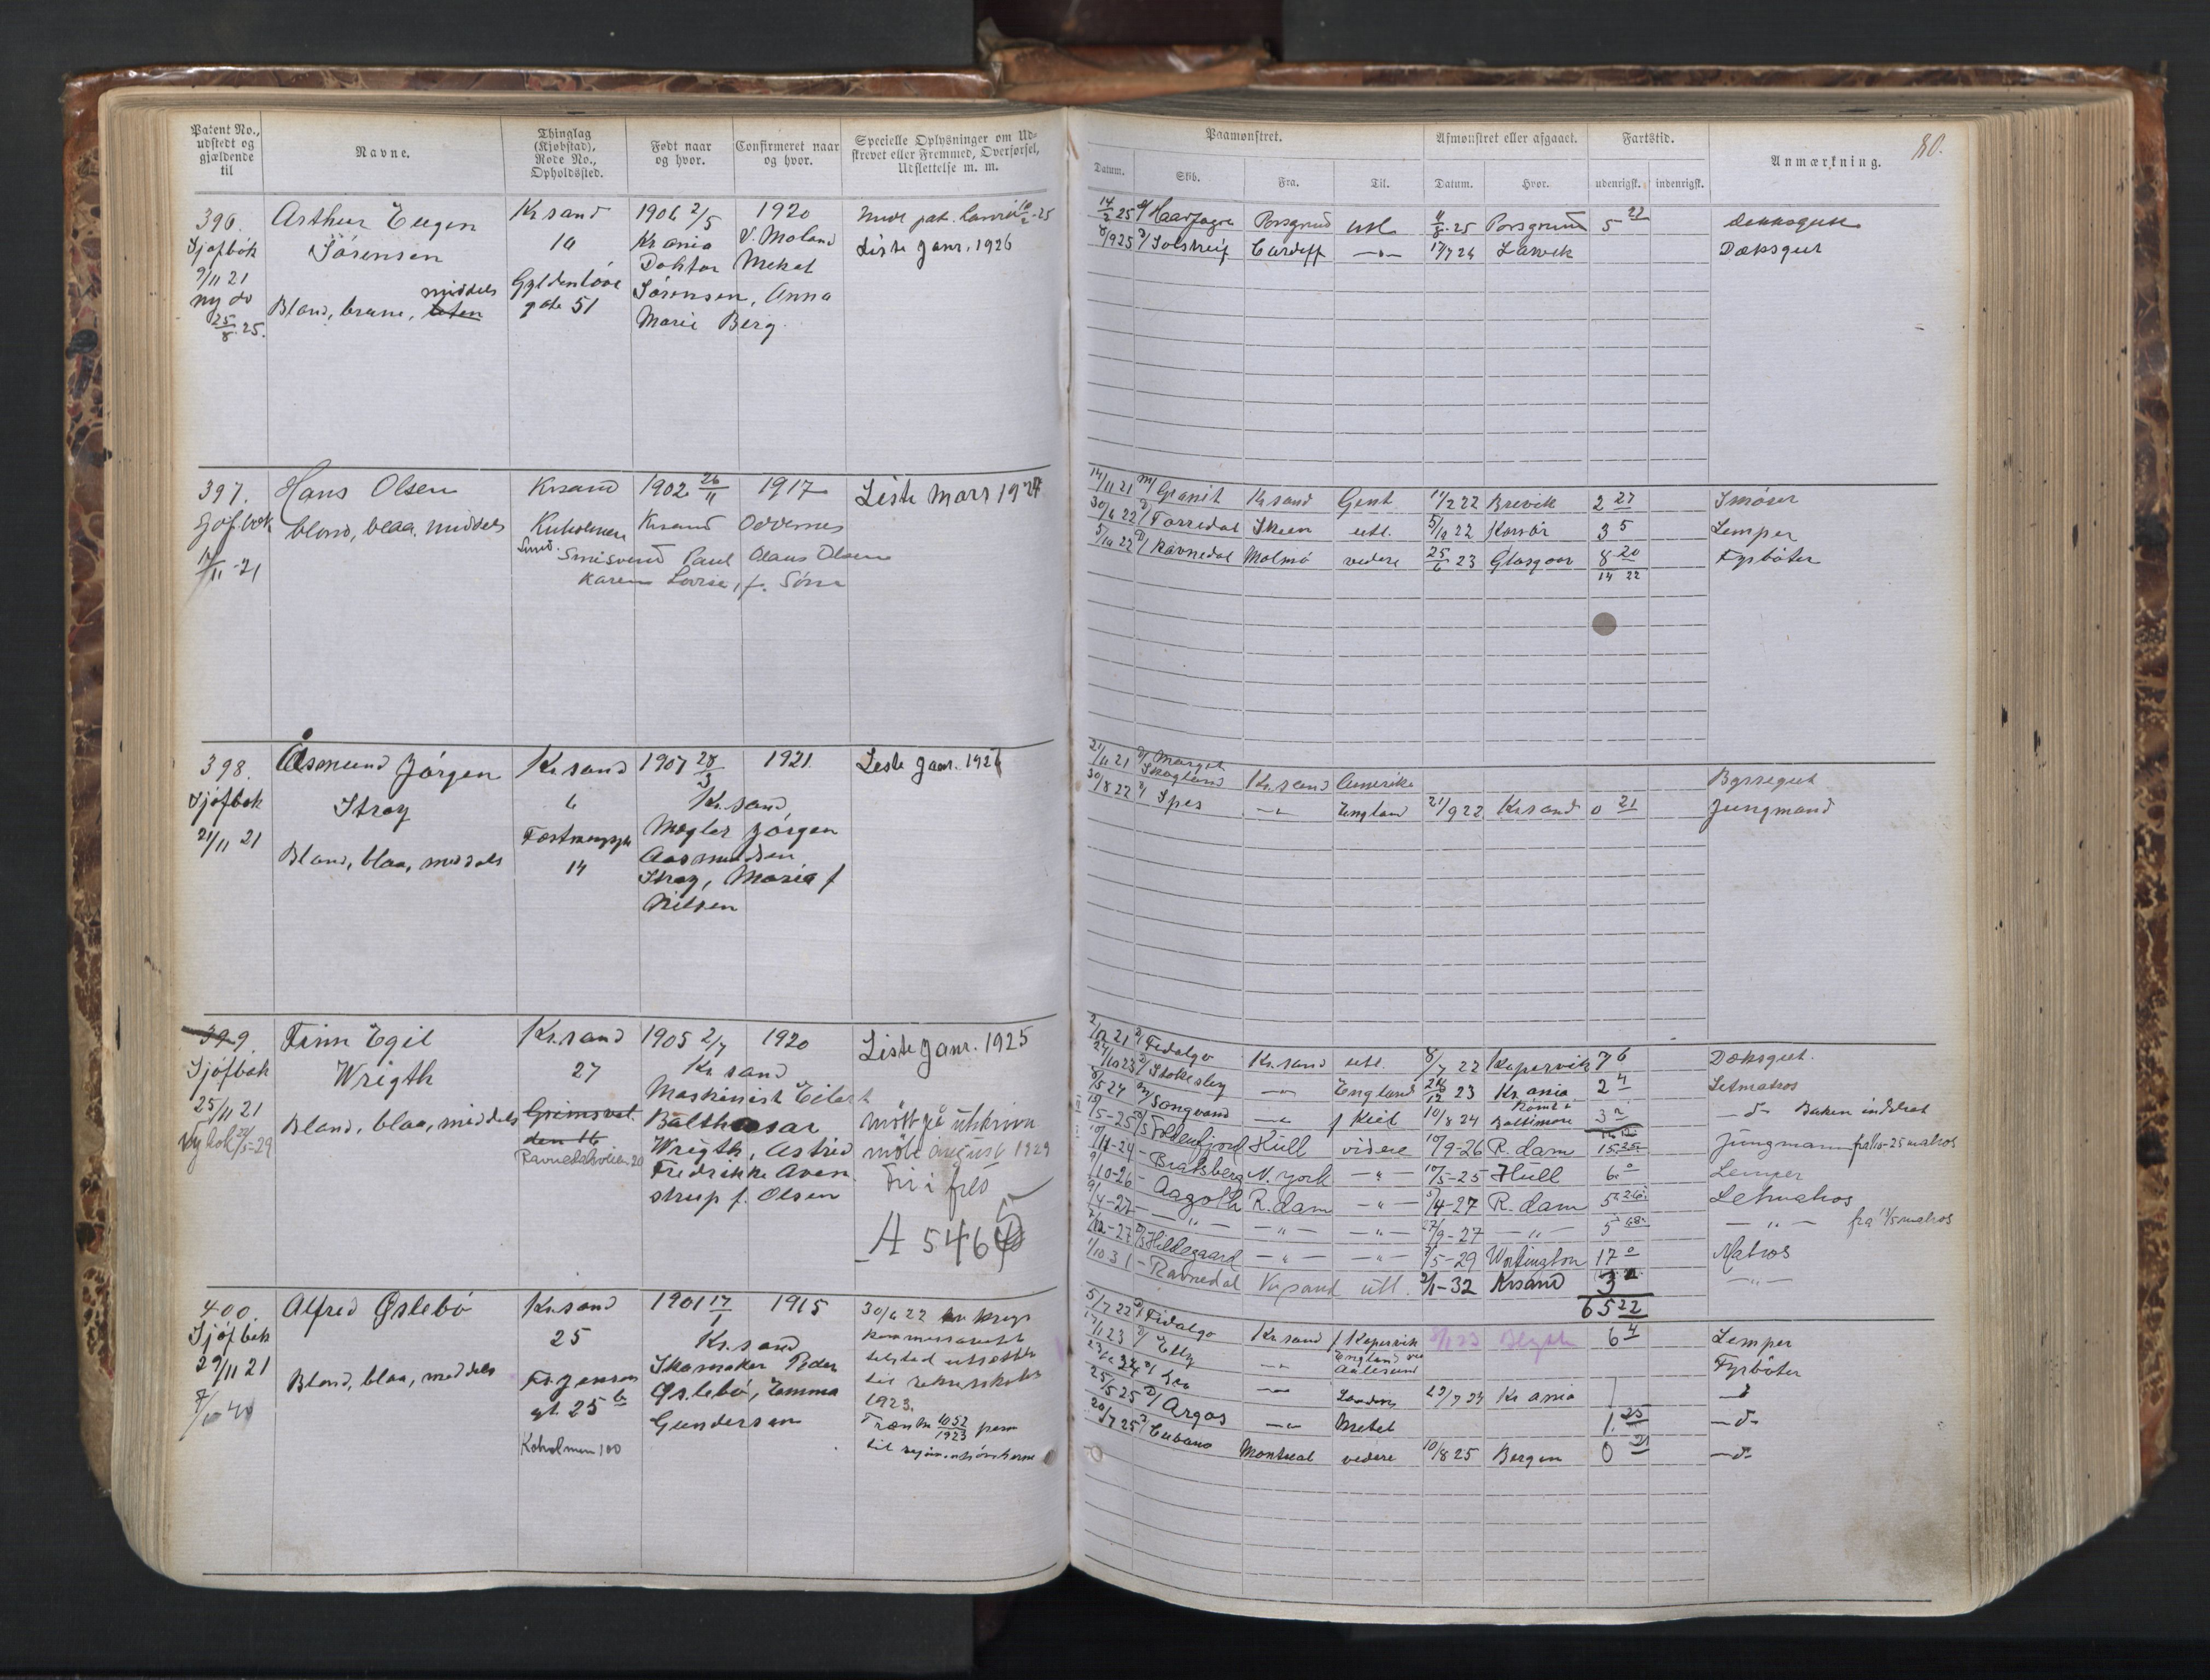 Patent No.,
udstedt og
gjældende
til
Navne.
Thinglag
(Kjøbstad),
Rode No.,
Opholdssted.
Født naar
og hvor.
Confirmeret naar
og hvor.
Specielle Oplysninger om Ud-
skrevet eller Fremmed, Overførsel,
Udslettelse m. m.
396.
Sjøfbok
9/11 21
ny do
25/8 25.
Arthur Eugen
Sørensen
Bland, brune, middels
Kr sand
10
Gyldenløve
gate 51
1906 2/5 1920
Kr ania V. Moland
Doktor Mekal
Sørensen, Anna
Marie Berg.
Liste Janr. 1926
397.
Sjøf.bok
14/11-21
Hans Olsen
blond, blaa, middels
Krsand
Kuholmen
1902 26/11 1917
Krsand Oddernes
Smisvend Paul Olaus Olsen
Karen Lovise, f. Sónn
Liste Mars 1924
398.
Sjøfbok
21/11 21
Åsmund Jörgen
Stray
Bland, blaa, middels
Kr.sand
6
14
1907 28/3 1921.
Kr.sand
Mægler Jörgen
Aasmundsen
Stray, Maria f
Nilsen
Liste Janr. 1926
399.
Sjøfbok
25/11 21
Ny bok 22/5-29
Finn Egil
Wrigth
Bland, blaa, middels
Kr.sand
27
Grimsvol
den 16
Ravnedalsveien 20
1905 2/7 1920
Kr sand
Maskinist Eilert
Balthasar
Wrigth, Astrid
Fredrikke Aven
strup f. Olsen
Liste Janr. 1925
Mött på utskrivn
möte august 1929
Fri i fred
A 5465
400.
Sjøfbok
29/11 21
7/10 40
Alfred Øslebö
Bland, blaa, middels
Kr.sand
25
Fr. Jenson
gt. 25 b
Koholmen 100
1901 17/1 1915
Kr.sand
Skomaker Peder
Øslebö, Emma
Gundersen
30/6 22
1923.
80.
Paamønstret.
Afmønstret eller afgaaet.
Fartstid.
Anmærkning.
Datum.
Skib.
Fra.
Til.
Datum.
Hvor.
udenrigsk.
indenrigsk.
14/2 25 Haarfagre Porsgrund utl 4/8-25 Porsgrund 5 22 Dæksgut
8/9 25 Solstreif Cardiff 17/7 26 Larvik Dæksgut
14/11 21 Granit Kr sand Gent 11/2 22 Brevik 2 27 Smører
30/6 22 Torredal Skien utl. 5/10 22 Korsör 3 5 Lemper
5/10 22 Ravnedal Malmö videre 25/6 23 Glasgow 8 20 Fyrböter
14 22
21/11 21 Margit
Skogland Kr.sand Amerika Byssegut
30/8 22 Spes England 21/9 22 Kr sand 0 21 Jungmand
2/12 21 Fidalgo Kr.sand utl. 8/7 22 Kopervik 7 6 Dæksgut.
24/10 23 Stokesley England 28/12 23 Kr.ania 2 4 Letmatros
8/5 24 Songvand f Kiel 10/8 24 Rømt i
Baltimore 3 2 -d- Baken inddrat
19/5-25 Foldenfjord Hull videre 10/9-26 R.dam Jungmann fra 1/10-25 matros
10/11-24 Bratsberg N.york 10/5-25 Hull 6 0 Lemper
9/10-26 Aagoth R.dam 5/4-27 R.dam 5 26 Letmatros
9/4-27 27/9-27 fra 1/5 matros
7/12-27 Hildegaard 7/5-29 Workington 17 0 Matros
1/10 31 Ravnedal Kr.sand utl. 2/1-32 Krsand
65 22
5/7 22 Fidalgo Kr.sand f Kopervik Blyth 6 4 Lemper
Elly England via
Aalesund Fyrböter
London 29/7 24 Kr ania
25/5 25 Argos Metel 1 25 -d-
20/7 25 Cubano Montreal videre 10/8 25 Bergen 0 21 -d-